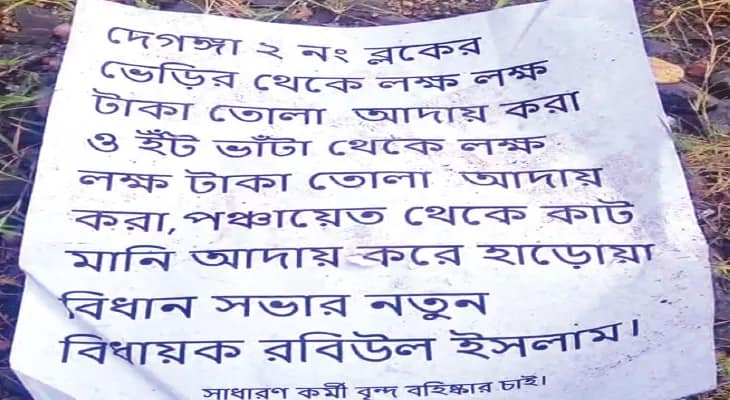 দেগঙ্গা ২ নং ব্লকের
ভেড়ির থেকে লক্ষ লক্ষ
টাকা তোলা আদায় করা
ও ইঁট ভাঁটা থেকে লক্ষ
লক্ষ টাকা তোলা আদায়
করা, পঞ্চায়েত থেকে কাট
মানি আদায় করে হাড়োয়া
বিধান সভার নতুন
বিধায়ক রবিউল ইসলাম।
সাধারণ কর্মী বৃন্দ বহিষ্কার চাই।